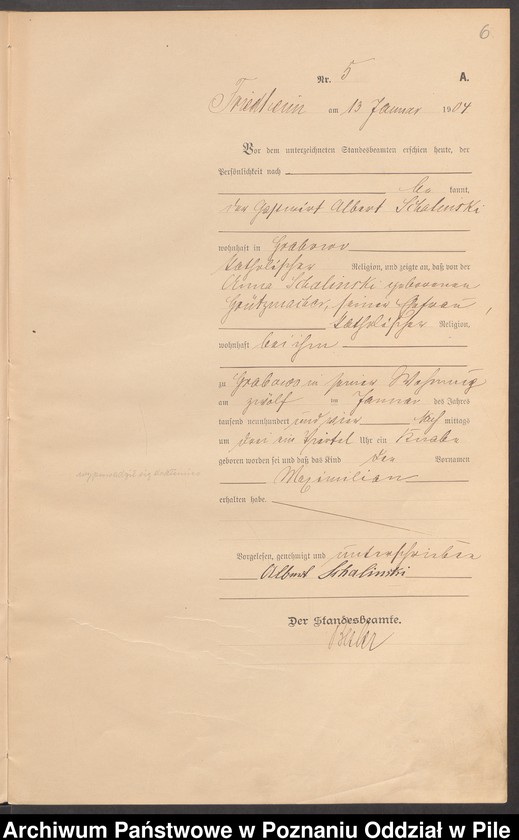 6
Nr. 5 A.
Friedheim am 13 Januar 1904
Vor dem unterzeichneten Standesbeamten erschien heute, der
Persönlichkeit nach
be kannt,
der Gastwirt Albert Schalinski
wohnhaft in Grabowo
katholischer Religion, und zeigte an, daß von der
Anna Schalinski geborenen
Grützmacher, seiner Ehefrau,
katholischer Religion,
wohnhaft bei ihm
zu Grabowo in seiner Wohnung
am zwölf ten Januar des Jahres
tausend neunhundert und vier Nach mittags
um drei ein Viertel Uhr ein Knabe
geboren worden sei und daß das Kind den Vornamen
Maximilian
erhalten habe.
Vorgelesen, genehmigt und unterschrieben
Albert Schalinski
Der Standesbeamte.
Archiwum Państwowe w Poznaniu Oddział w Pile